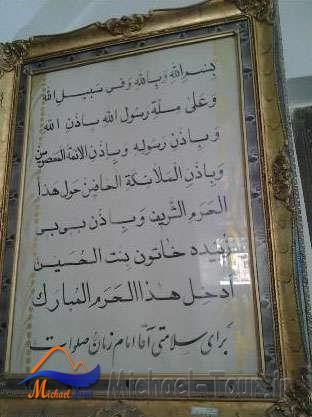 بِسْمِ اللهِ وَبِاللهِ وَفی سَبیلِ اللهِ
وَعَلیٰ مِلَّةِ رَسُولِ اللهِ بِإذْنِ اللهِ
وَبِإذْنِ رَسُولِهِ وَبِإذْنِ الأئمةِ المعصومین
وَبِإذْنِ المَلائکةِ الحافین حَولَ هذا
الحَرَمِ الشَّریفِ وَبِإذْنِ بی بی
خاتون بِنتِ الحُسَین
اَدخل هذا الحَرَم المُبارک
برای سلامتی آقا امام زمان صلوات
Michael
Michael-Tour.ir